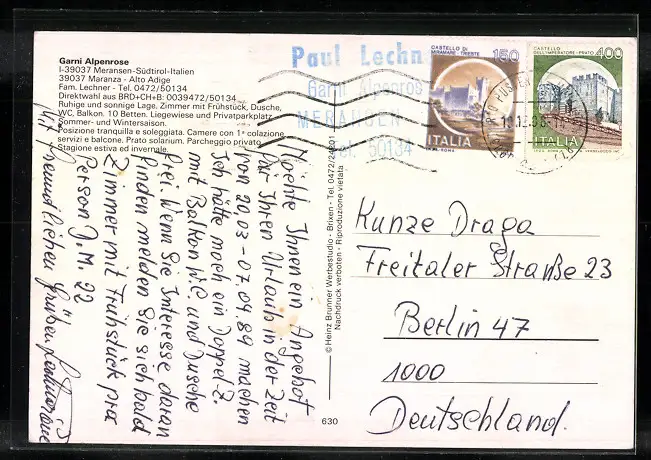 Garni Alpenrose
I-39037 Meransen-Südtirol-Italien
39037 Maranza - Alto Adige
Fam. Lechner - Tel. 0472/50134
Direktwahl aus BRD+CH+B: 0039472/50134
Ruhige und sonnige Lage. Zimmer mit Frühstück, Dusche,
WC, Balkon. 10 Betten. Liegewiese und Privatparkplatz.
Sommer- und Wintersaison.
Posizione tranquilla e soleggiata. Camere con 1ª colazione
servizi e balcone. Prato solarium. Parcheggio privato.
Stagione estiva ed invernale.
Paul Lechn
Garni Alpenros
MERANSEN
Tel. 50134
CASTELLO DI
MIRAMARE - TRIESTE
150
ITALIA
CASTELLO
DELL'IMPERATORE - PRATO
400
ITALIA
Möchte Ihnen ein Angebot
für Ihren Urlaub in der Zeit
von 20.03 - 07.04.89 machen
Ich hätte noch ein Doppel-Z.
mit Balkon W.C. und Dusche
frei. Wenn Sie Interesse daran
finden melden Sie sich bald
Zimmer mit Frühstück pro
Person D.M. 22
Mit freundlichen Grüßen
© Heinz Brunner Werbestudio - Brixen - Tel. 0472/24201
Nachdruck verboten - Riproduzione vietata
630
Kunze Draga
Freitaler Straße 23
Berlin 47
1000
Deutschland.